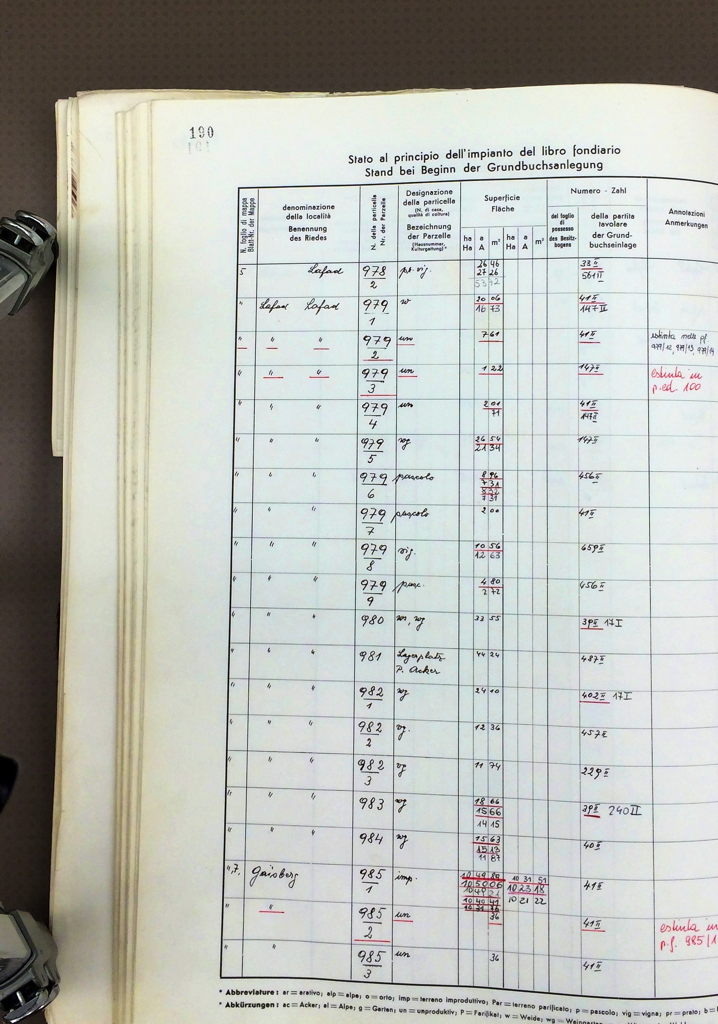 190
Stato al principio dell'impianto del libro fondiario
Stand bei Beginn der Grundbuchsanlegung
N. foglio di mappa
Blatt-Nr. der Mappe
denominazione
della località
Benennung
des Riedes
N. della particella
Nr. der Parzelle
Designazione
della particella
(N. di casa,
qualità di coltura)
Bezeichnung
der Parzelle
(Hausnummer,
Kulturgattung)*
Superficie
Fläche
ha a m² ha a m²
Ha A Ha A
Numero - Zahl
del foglio
di
possesso
des Besitz-
bogens
della partita
tavolare
der Grund-
buchseinlage
Annotazioni
Anmerkungen
5 Lafad 978/2 26 46 33 II
27 26 561 II
53 72
" Lafad Lafad 979/1 w 20 06 41 II
16 73 147 II
" " " 979/2 un 7 61 41 II estinta nelle pf
979/12, 979/13, 979/14
" " " 979/3 un 1 22 147 II estinta in
p.ed. 100
" " " 979/4 un 2 01 41 II
71 147 II
" " " 979/5 wg 26 54 147 II
21 34
" " " 979/6 pascolo 8 96 456 II
7 31
7 31
" " " 979/7 pascolo 2 00 41 II
" " " 979/8 vig. 10 56 659 II
12 63
" " " 979/9 pasc. 4 80 456 II
2 72
" " " 980 wg 33 55 39 II 17 I
" " " 981 Lagerplatz 44 24 487 II
P. Acker
" " " 982/1 wg 24 10 402 II 17 I
" " " 982/2 vg. 12 36 457 II
" " " 982/3 vg 11 74 229 II
" " " 983 wg 18 66 39 II 240 II
15 66
14 15
" " " 984 wg 15 63 40 II
15 13
11 87
" 7, Gaisberg 985/1 imp. 10 49 80 10 31 51 41 II
10 50 06 10 23 18
10 49 21 10 21 22
10 40 41
" " 985/2 un 36 41 II estinta in
p.f. 985/1
" " 985/3 un 36 41 II
* Abbreviature: ar = arativo, alp = alpe; o = orto; imp = terreno improduttivo, Par = terreno parificato; p = pascolo, vig = vigna; pr = prato;
* Abkürzungen: ac = Acker; al = Alpe; g = Garten; un = unproduktiv, P = Parifikat; w = Weide; wg =